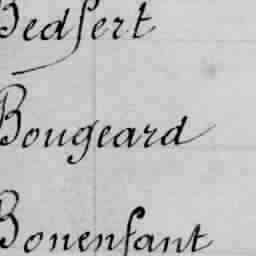 Bedfert
Bougeard
Bonenfant